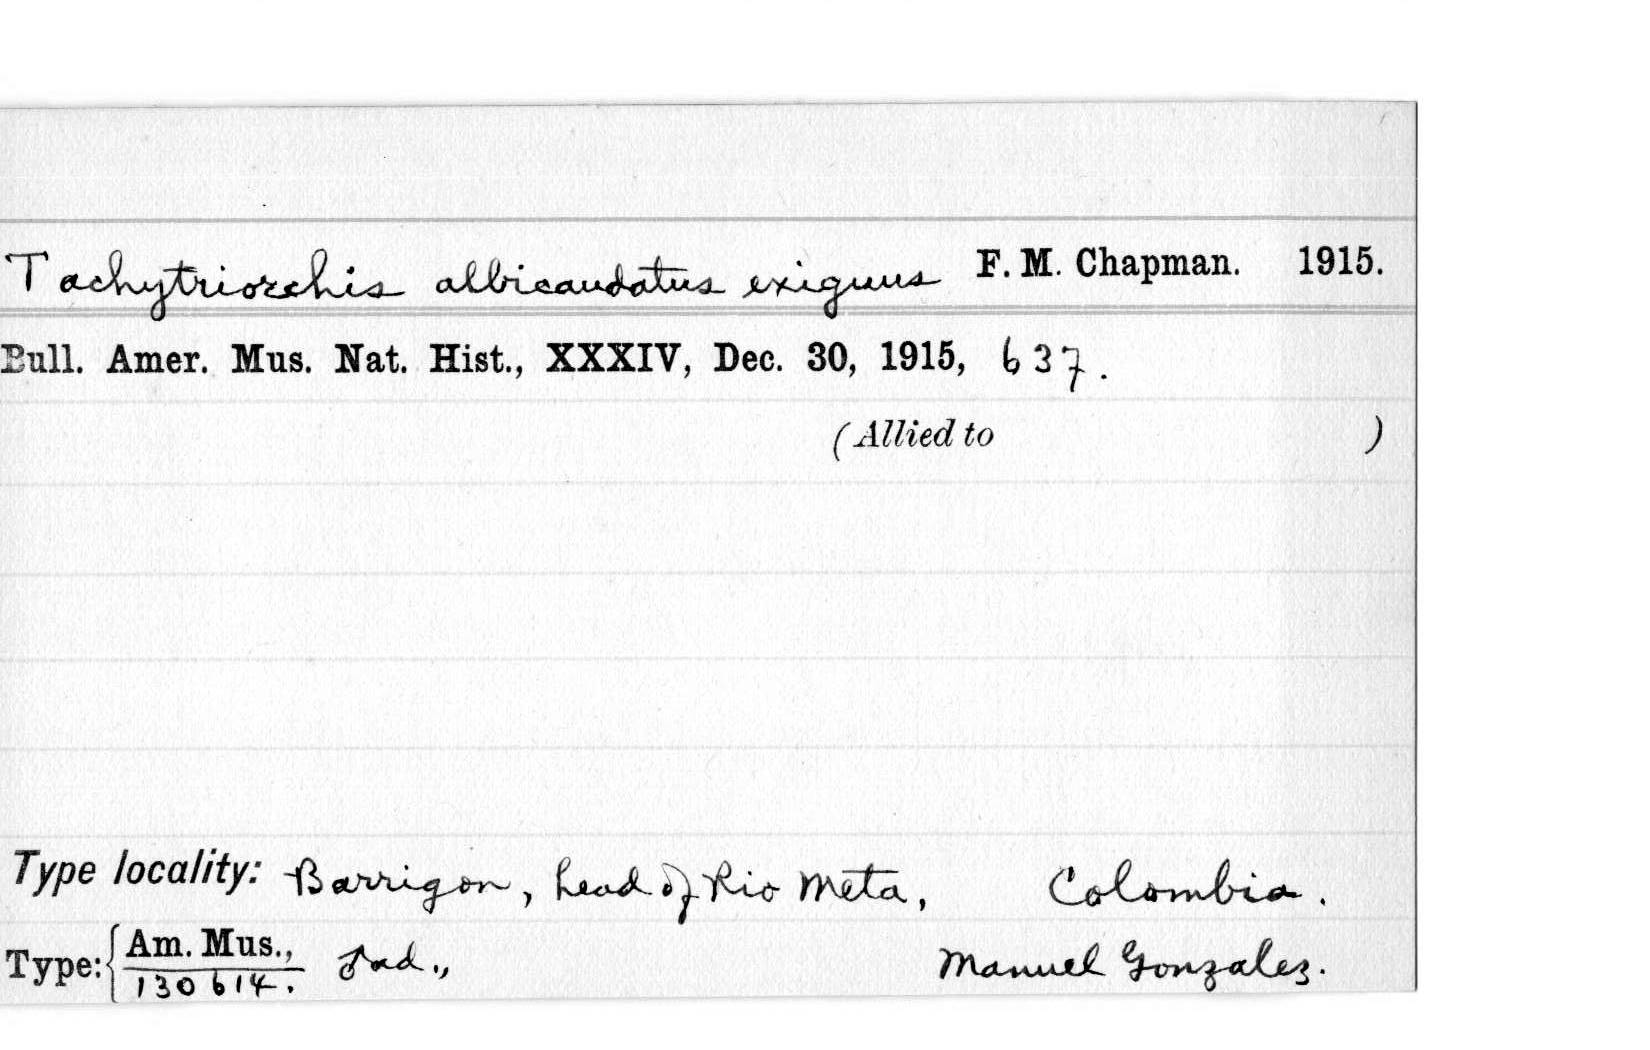 Tachytriorchis albicaudatus exiguus F. M. Chapman. 1915.
Bull. Amer. Mus. Nat. Hist., XXXIV, Dec. 30, 1915, 637.
(Allied to )
Type locality: Barrigon, head of Rio Meta, Colombia.
Type: { Am. Mus., ♂ ad., Manuel Gonzalez.
130614.